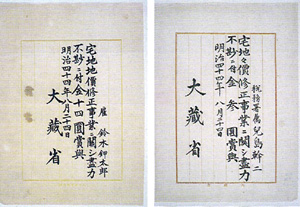 雇 鈴木卯太郎
宅地地價修正事業ニ關シ盡力
不尠ニ付金十四圓賞與
明治四十四年八月二十四日
大藏省
税務署属 兒島幹二
宅地々價修正事業ニ關シ盡力
不尠ニ付金参圓賞與
明治四十四年八月二十四日
大藏省